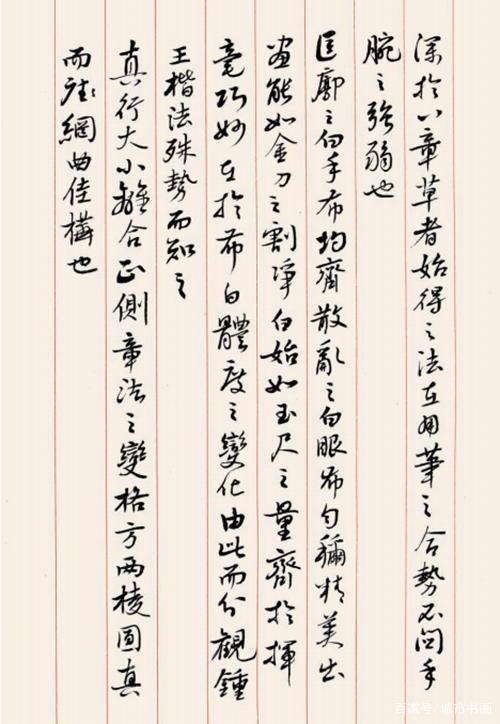 深於八章草者始得之法在用筆之合勢不関手
腕之強弱也
匡廓之白手布均齊散亂之白眼布勻稱精美出
畫能如金刀之割淨白始如玉尺之量齊於揮
毫巧妙在於布白體度之變化由此而分觀鍾
王楷法殊勢而知之
真行大小離合正側章法之變格方而棱圓真
而網曲佳構也
百家号/城市书画